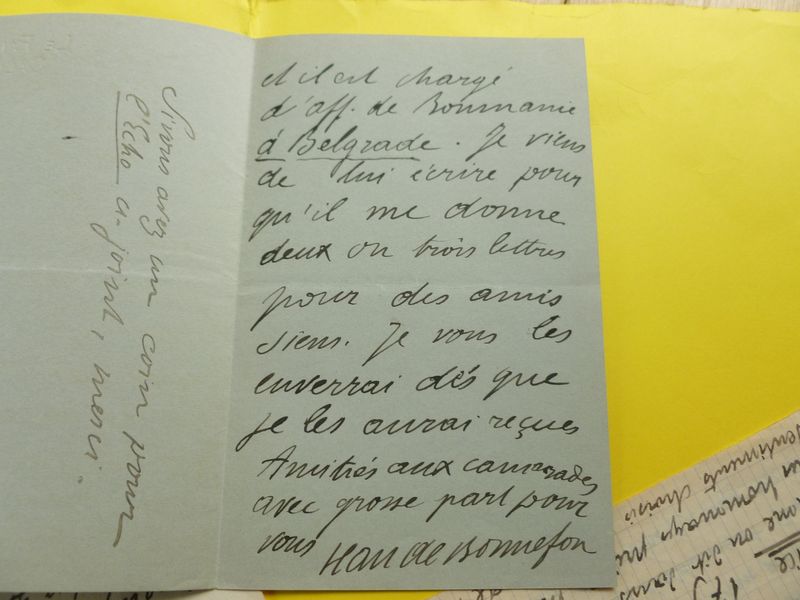 et il est chargé
d'aff. de Roumanie
à Belgrade. Je viens
de lui écrire pour
qu'il me donne
deux ou trois lettres
pour des amis
siens. Je vous les
enverrai dès que
je les aurai reçues
Amitiés aux camarades
avec grosse part pour
vous Jean de Bonnefon
Si vous avez un coin pour
l'Echo ci-joint, merci.
sentiments choisis
homonage
on dit dans